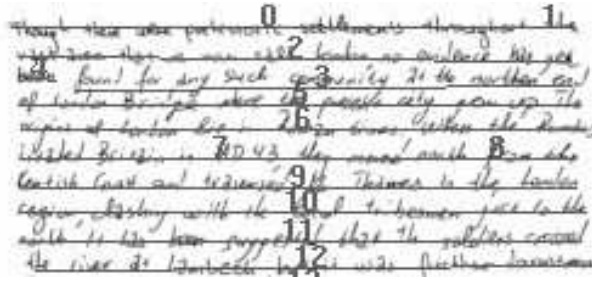 Though there were prehistoric settlements throughout the
vast area that is now called London no evidence has yet
been found for any such community at the northern end
of London Bridge where the present city grew up The
origins of London lie in Roman times. When the Romans
invaded Britain in AD 43 they moved north from the
Kentish Coast and traversed the Thames in the London
region clashing with the local tribesmen just to the
north it has been suggested that the soldiers crossed
the river at Lambeth but it was further downstream